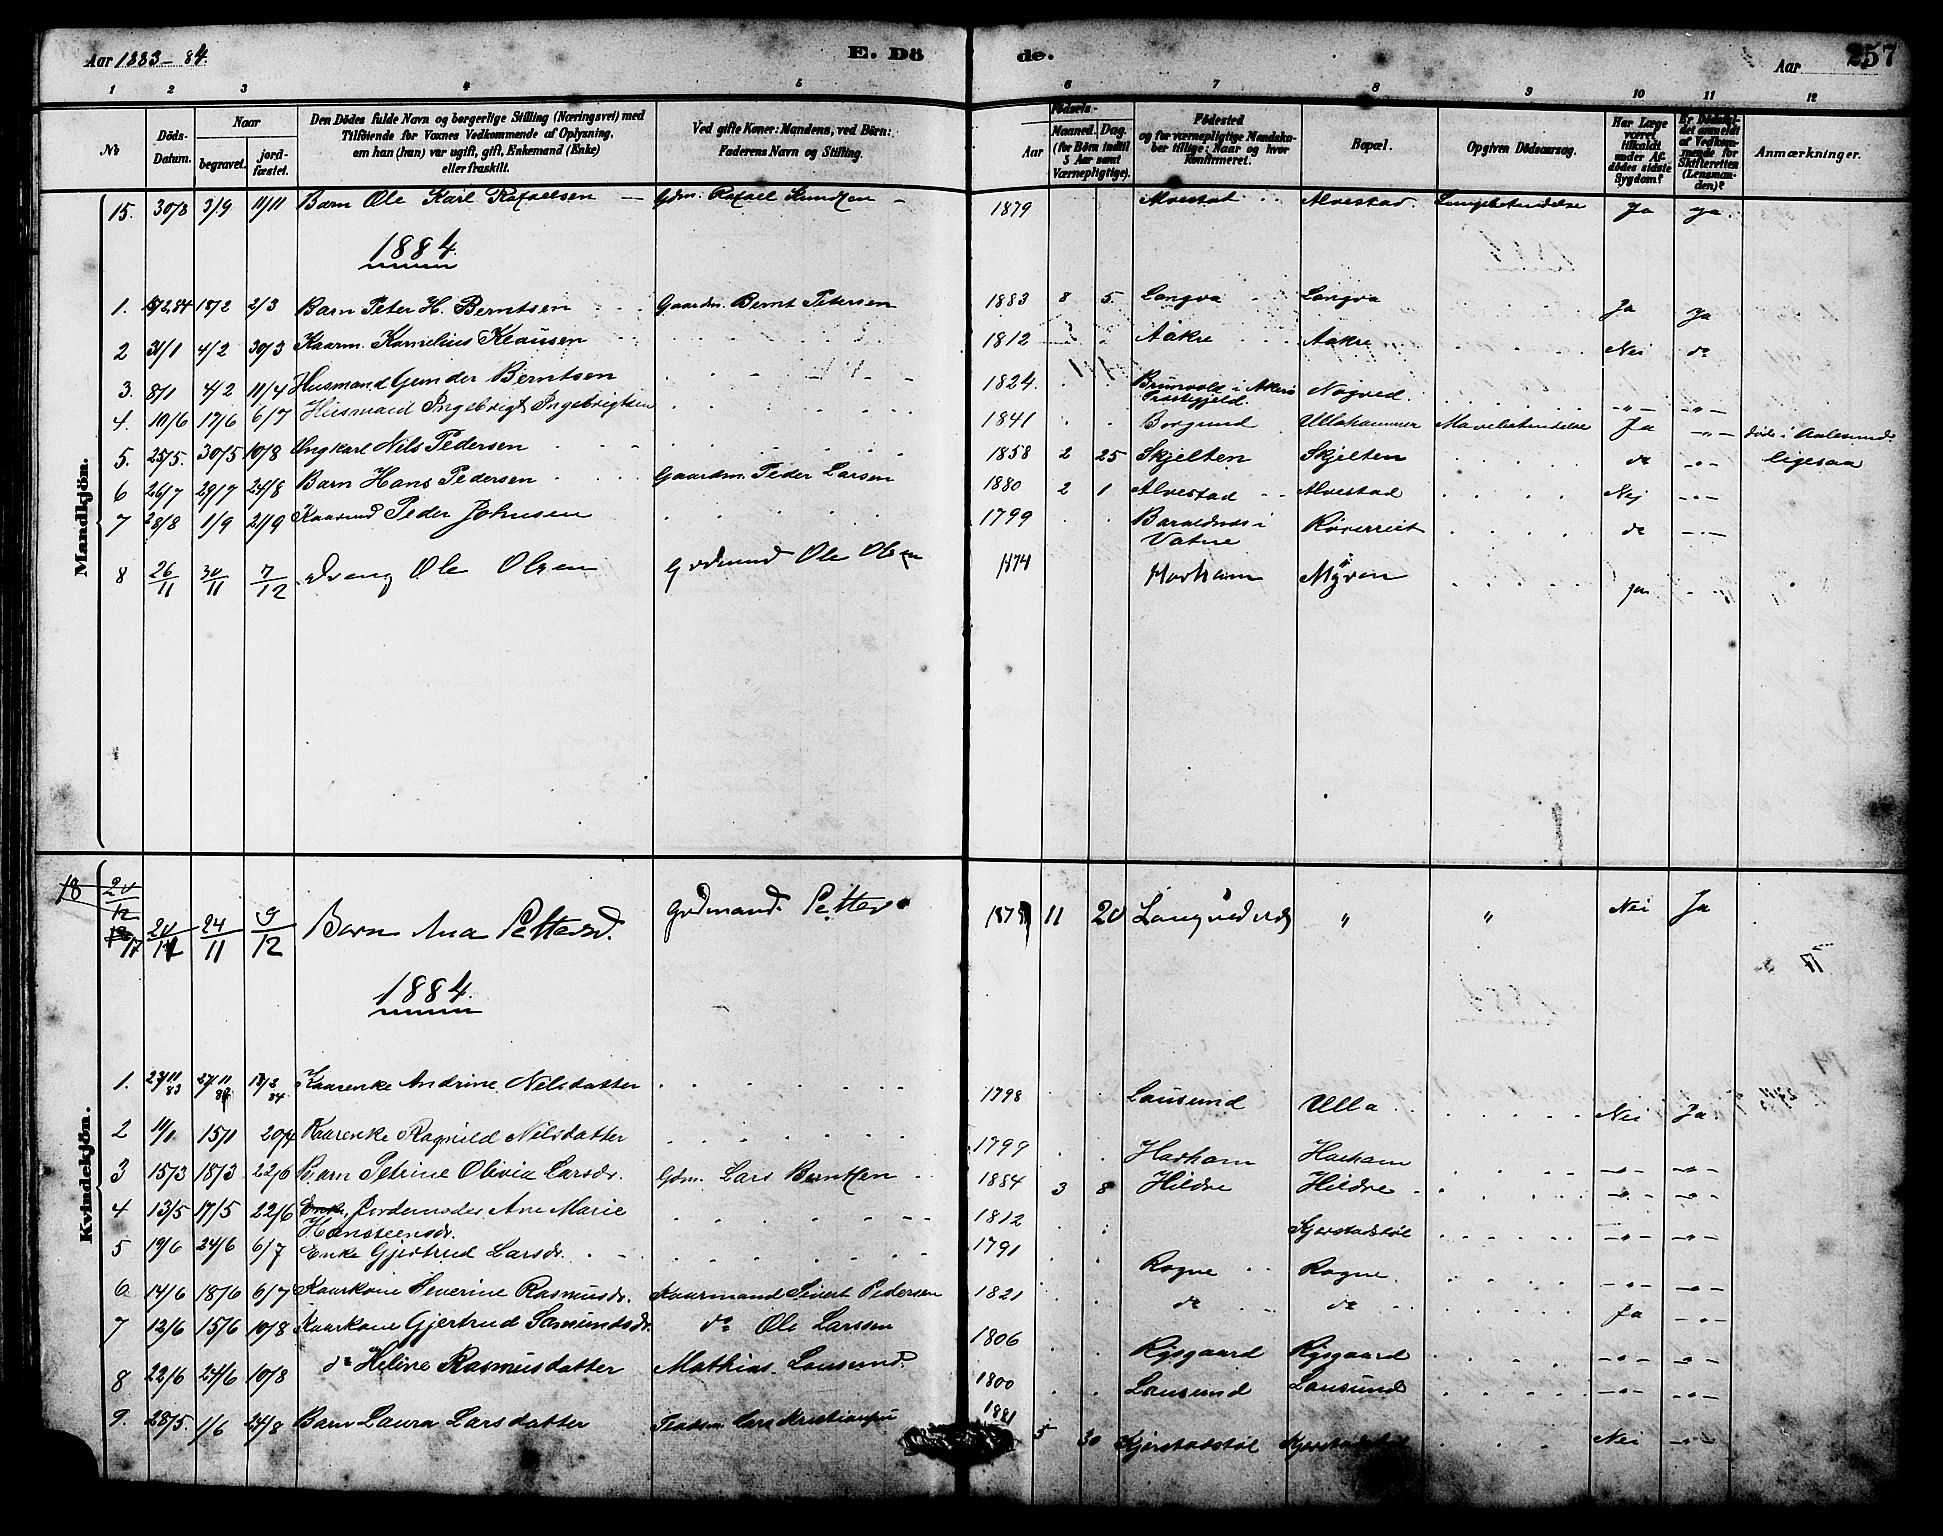 Aar 1883-84.
E. Dö
de.
Aar
257
1 2 3 4 5 6 7 8 9 10 11 12
No
Döds-Datum.
Naar
begravet.
jord-fæstet.
Den Dödes fulde Navn og borgerlige Stilling (Næringsvei) med
Tilföiende for Voxnes Vedkommende af Oplysning,
om han (hun) var ugift, gift, Enkemand (Enke)
eller fraskilt.
Ved gifte Koner: Mandens, ved Börn:
Faderens Navn og Stilling.
Födsels-
Aar
Maaned.
Dag.
(for Börn indtil
5 Aar samt
Værnepligtige).
Födested
og for værnepligtige Mandska-
ber tillige: Naar og hvor
konfirmeret.
Bopæl.
Opgiven Dödsaarsag.
Har Læge
været
tilkaldt
under Af-
dödes sidste
Sygdom?
Er Dödsfal-
det anmeldt
af Vedkom-
mende for
Skifteretten
(Lensman-
den)?
Anmærkninger.
Mandkjön.
15. 30/8 3/9 11/11 Barn Ole Karl Rafaelsen Gdm. Rafael Knudsen 1879 Alvestad Alvestad. Lungebetændelse Ja Ja.
1884.
1. 18/2 2/3 Barn Peter H. Berntsen Gaardm. Bernt Petersen 1883 8 5. Longva Longva Ja Ja
2 31/1 4/2 30/3 Kaarm. Kornelius Klausen 1812 Aakre Aakre Nei do
3. 8/1 4/2 11/4 Husmand Gunder Berntsen 1824. Nogved. -"- -"-
4. 10/6 17/6 6/7 Husmand Ingebrigt Ingebrigtsen 1841 Borgund Ullahammer Mavebetændelse Ja -"- död i Aalesund
5. 25/5. 30/5 10/8 Ungkarl Nils Pedersen 1858 2 25 Skjelten Skjelten do -"- ligesaa
6 26/7 29/7 24/8 Barn Hans Pedersen Gaardm. Peder Larsen 1880 2 1 Alvestad Alvestad Nej -"-
7 28/8 1/9 21/9 Kaarmd Peder Johnsen 1799 i Vatne do -"-
8 26/11 30/11 7/12 Dreng Ole Olsen Grdmnd Ole Olsen 1874 Harham Myren Ja
Kvindekjön.
18 20/12
17 20/11 24/11 9/12 Barn Ana Pettersd. Grdmand. Petter 11 20 " " Nei Ja
1884.
1. 83 27/11 84 Kaarenke Andrine Nilsdatter 1798 Lausund Ulla Nei Ja
2 11/1 15/1 20/4 Kaarenke Ragnild Nilsdatter 1799 Harham Harham -"- -"-
3 15/3 18/3 22/6 Barn Petrine Olivia Larsdr. Gdm. Lars Berntsen 1884 3 8 Hildre Hildre -"- -"-
4 13/5 17/5 22/6 Enke, Jordemoder Ane Marie
Hansteensdr. 1812 Kjerstadstöl -"- -"-
5 19/6 24/6 6/7 Enke Gjertrud Larsdr. 1791 Rogne Rogne -"- -"-
6 14/6 18/6 6/7 Kaarkone Severine Rasmusdr. Kaarmand Sivert Pedersen 1821 do do Ja -"-
7 12/6 15/6 10/8 Kaarkone Gjertrud Samundsdr. do Ole Larssen 1806 Rösgaard Rösgaard -"- -"-
8 22/6 24/6 10/8 do Heline Rasmusdatter Mathias Lausund. 1800 Lausund Lausund -"- -"-
9. 28/5. 1/6 24/8 Barn Laura Larsdatter Lars Kristiansen 1881 5 30 Kjerstadstöl Kjerstadstöl Nei -"-